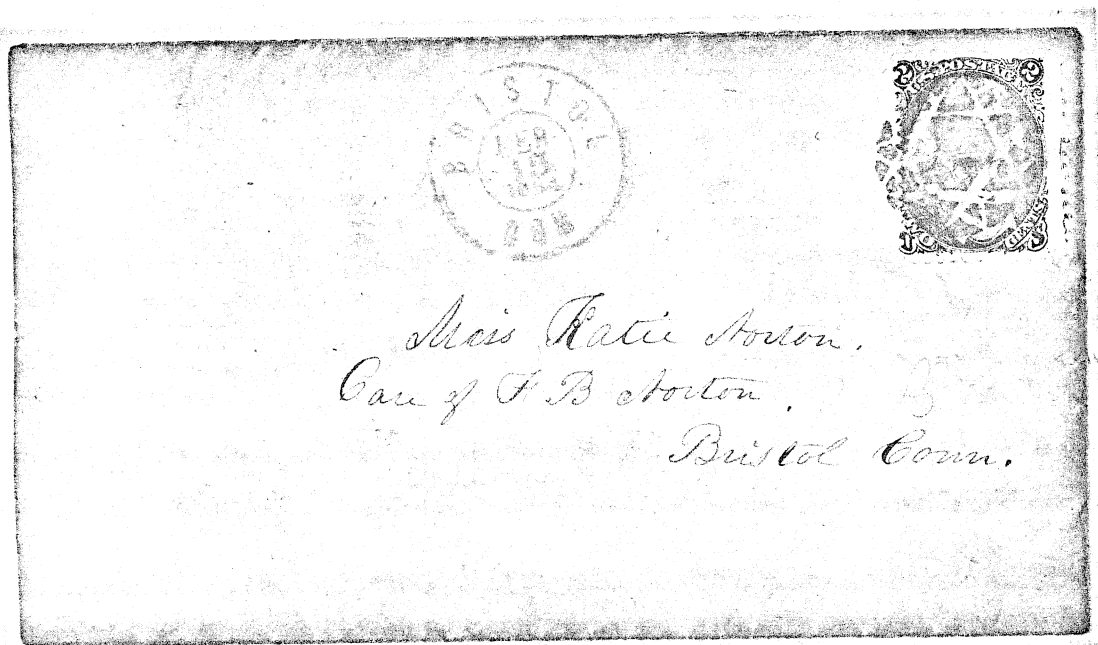 BRISTOL
FEB
CON
U.S. POSTAGE
2 2
Miss Katie Norton.
Care of F B Norton.
Bristol Conn.